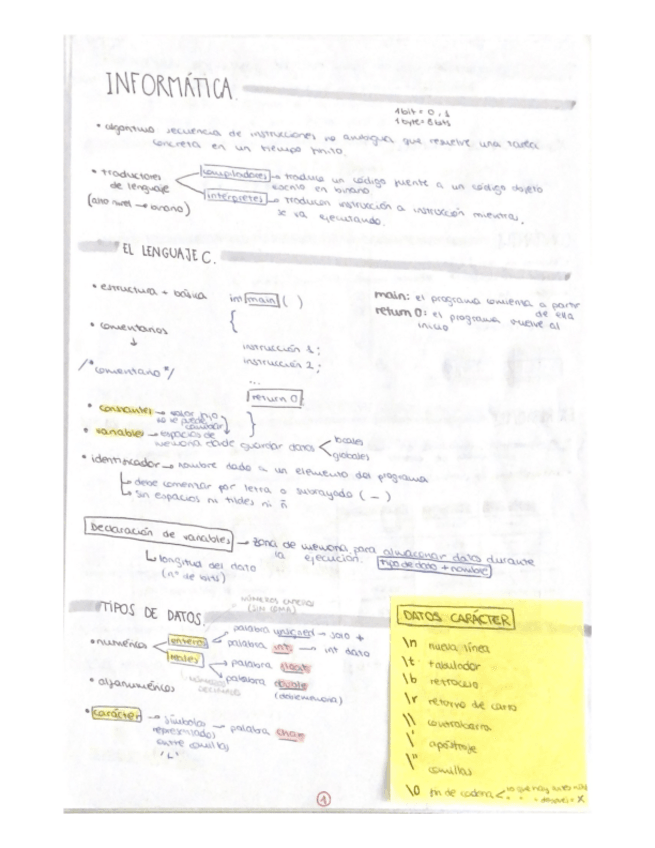 INFORMÁTICA.
1 bit = 0, 1
1 byte = 8 bits
• algoritmo secuencia de instrucciones no ambigua que resuelve una tarea
concreta en un tiempo finito.
• traductores de lenguaje (alto nivel → binario)
compiladores → traduce un código fuente a un código objeto
escrito en binario
intérpretes → traducen instrucción a instrucción mientras
se va ejecutando.
EL LENGUAJE C.
• estructura + básica
int main ( )
{
instrucción 1;
instrucción 2;
...
return 0;
}
main: el programa comienza a partir
de ella
return 0: el programa vuelve al
inicio
• comentarios
↓
/*comentario*/
• constantes → valor fijo
no se puede cambiar
• variables → espacios de
memoria donde guardar datos
locales
globales
• identificador → nombre dado a un elemento del programa
↳ debe comenzar por letra o subrayado ( _ )
↳ sin espacios ni tildes ni ñ
Declaración de variables → zona de memoria para almacenar dato durante
la ejecución. tipo de dato + nombre
↳ longitud del dato
(nº de bits)
TIPOS DE DATOS.
NÚMEROS ENTEROS
• numéricos
enteros
palabra unsigned → solo +
palabra int → int dato
reales
palabra float
palabra double
NÚMEROS DECIMALES
• alfanuméricos
• carácter → símbolos → palabra char
representados
entre comillas
DATOS CARÁCTER
\n nueva línea
\t tabulador
\b retroceso
\r retorno de carro
\\ contrabarra
\' apóstrofe
\" comillas
\0 fin de cadena
1